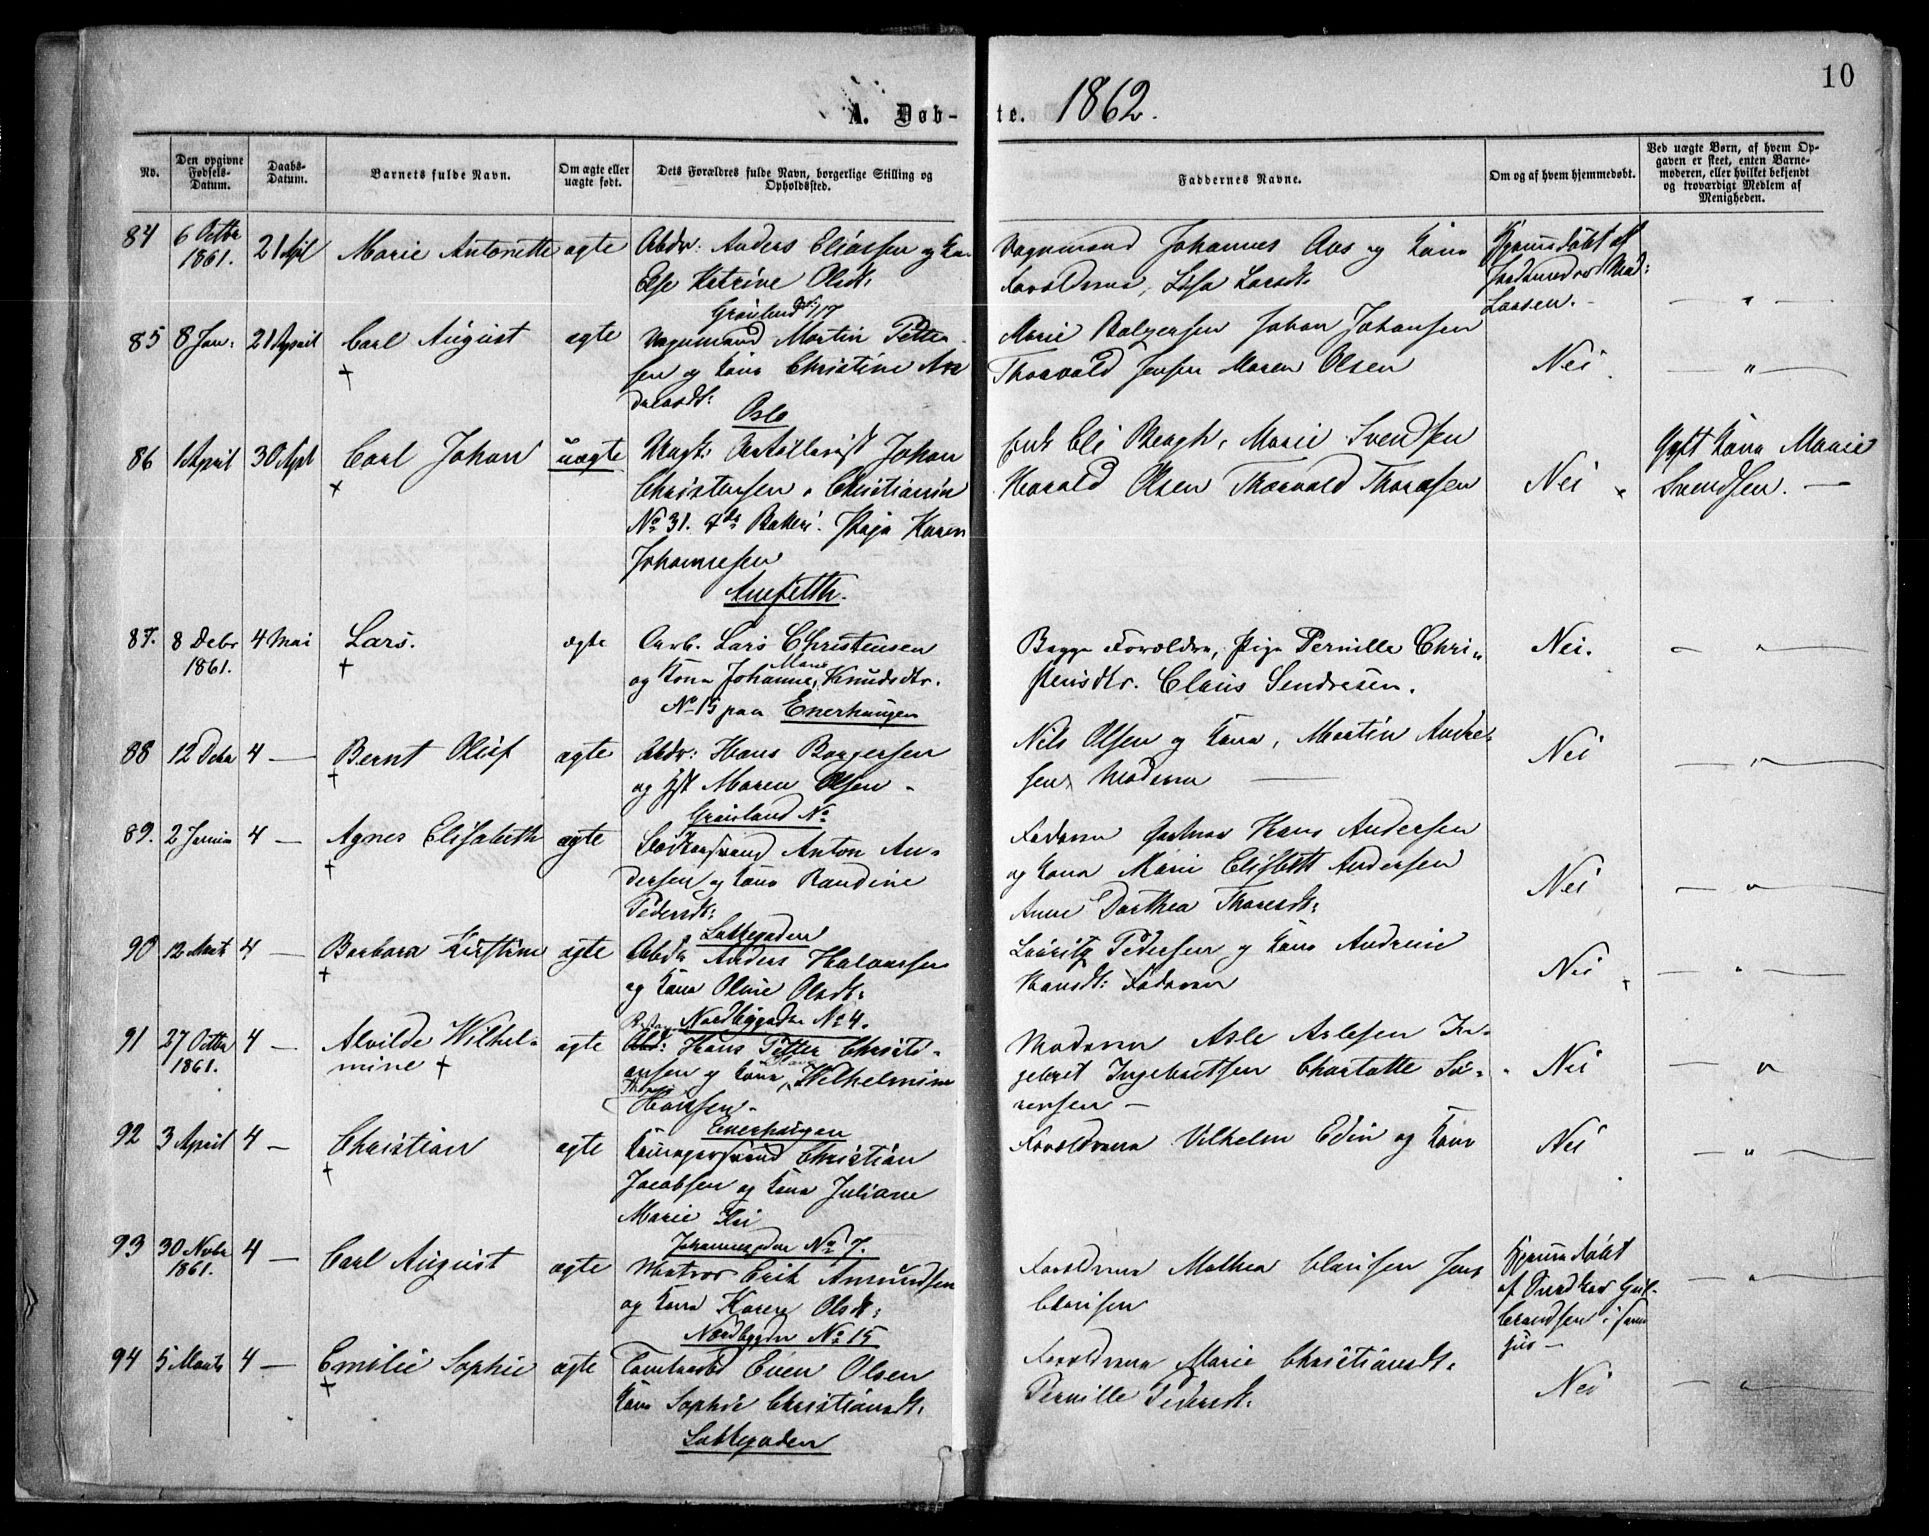 10
A. Døb- te. 1862.
No.
Den opgivne Fødsels-Datum.
Daabs-Datum.
Barnets fulde Navn.
Om ægte eller uægte født.
Dets Forældres fulde Navn, borgerlige Stilling og Opholdssted.
Faddernes Navne.
Om og af hvem hjemmedøbt.
Ved uægte Børn, af hvem Opgaven er skeet, enten Barnemoderen, eller hvilket bekjendt og troværdigt Medlem af Menigheden.
84 6 Octbr 21 Apl Marie Antonette ægte Abdr: Anders Eliassen og Ko- Johannes Aas og Kone Hjemmedøbt af
1861. Else Katrine Olsdt: Forældrene, Lisa Larsdt.
Grønland 17 Larsen. - — " —
85 8 Jan: 21 April Carl August ægte Vognmand Martin Petter- Marie Bolgersen Johan Johansen Nei — " —
+ sen og Kone Christine An- Thorvald Jensen Maren Olsen
dersdt:
Oslo
86 1 April 30 Apl Carl Johan uægte Ungk: Artillerist Johan Enk Eli Bergh, Marie Svendsen Nei Gift Kone Marie
+ Christensen, Christiania Harald Olsen Thorvald Thoresen Svendsen. —
No 31. 4de Batteri. Pige Karen
Johannesen
87. 8 Debr 4 Mai Lars. ægte Arb. Lars Christensen Begge Forældre, Pige Pernille Chri- Nei.
1861. + og Kone Johanne Marie Knudsdtr. stensdtr. Claus Sendresen.
No 15 paa Enerhaugen
88 12 Debr 4 — Bernt Oluf ægte Abdr: Hans Borgersen Nils Olsen og Kone, Martin Andre- Nei — " —
+ og Maren Olsen - sen, Moderen —
Grønland No
89. 2 4 — Agnes Elisabeth ægte Anton An- Faderen Hans Andersen Nei — " —
+ dersen og Kone Randine og Kone Marie Elisbett Andersen
Pedersdt: Anne Dorthea Thoresdt:
Lakkegaden
90 12 Marts 4 — Barbara Kirstine ægte Abdr Anders Halvorsen Lauritz Pedersen og Kone Andrine Nei — " —
+ og Kone Oline Olsdt: Hansdt: Faderen
Nordbygaden No 4.
91 27 Octbr 4 — Alvilde Wilhel- ægte Abd: Hans Petter Christi- Moderen Asle Aslesen In- Nei — " —
1861. mine + ansen og Kone Wilhelmine gebret Ingebretsen Charlotte Sø-
Hansen - rensen —
Enerhaugen
92 3 April 4 — Christian ægte Christian Forældrene Vilhelm Edin og Kone Nei — " —
+ Jacobsen og Kone Juliane
Marie
Johannesgden No 7.
93 30 Novbr 4 — Carl August ægte Matros Erik Amundsen Forældrene Mathea Clausen Jens Hjemmedøbt — " —
1861. og Kone Karen Olsdt: Clausen af
Nordbygden No 15
94 5 Marts 4 — Emilie Sophie ægte Even Olsen Forældrene Marie Christiansdt: Nei — " —
+ Kone Sophie Christiansdt: Pernille Pedersdt.
Lakkegaden